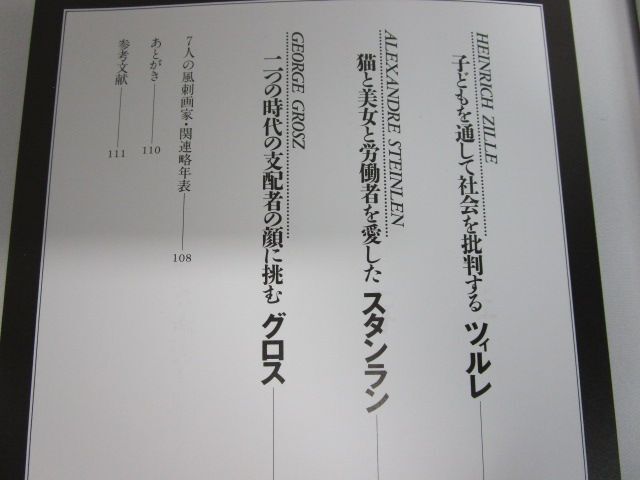 HEINRICH ZILLE
子どもを通して社会を批判する ツィルレ
ALEXANDRE STEINLEN
猫と美女と労働者を愛した スタンラン
GEORGE GROSZ
二つの時代の支配者の顔に挑む グロス
7人の風刺画家・関連略年表 108
あとがき 110
参考文献 111